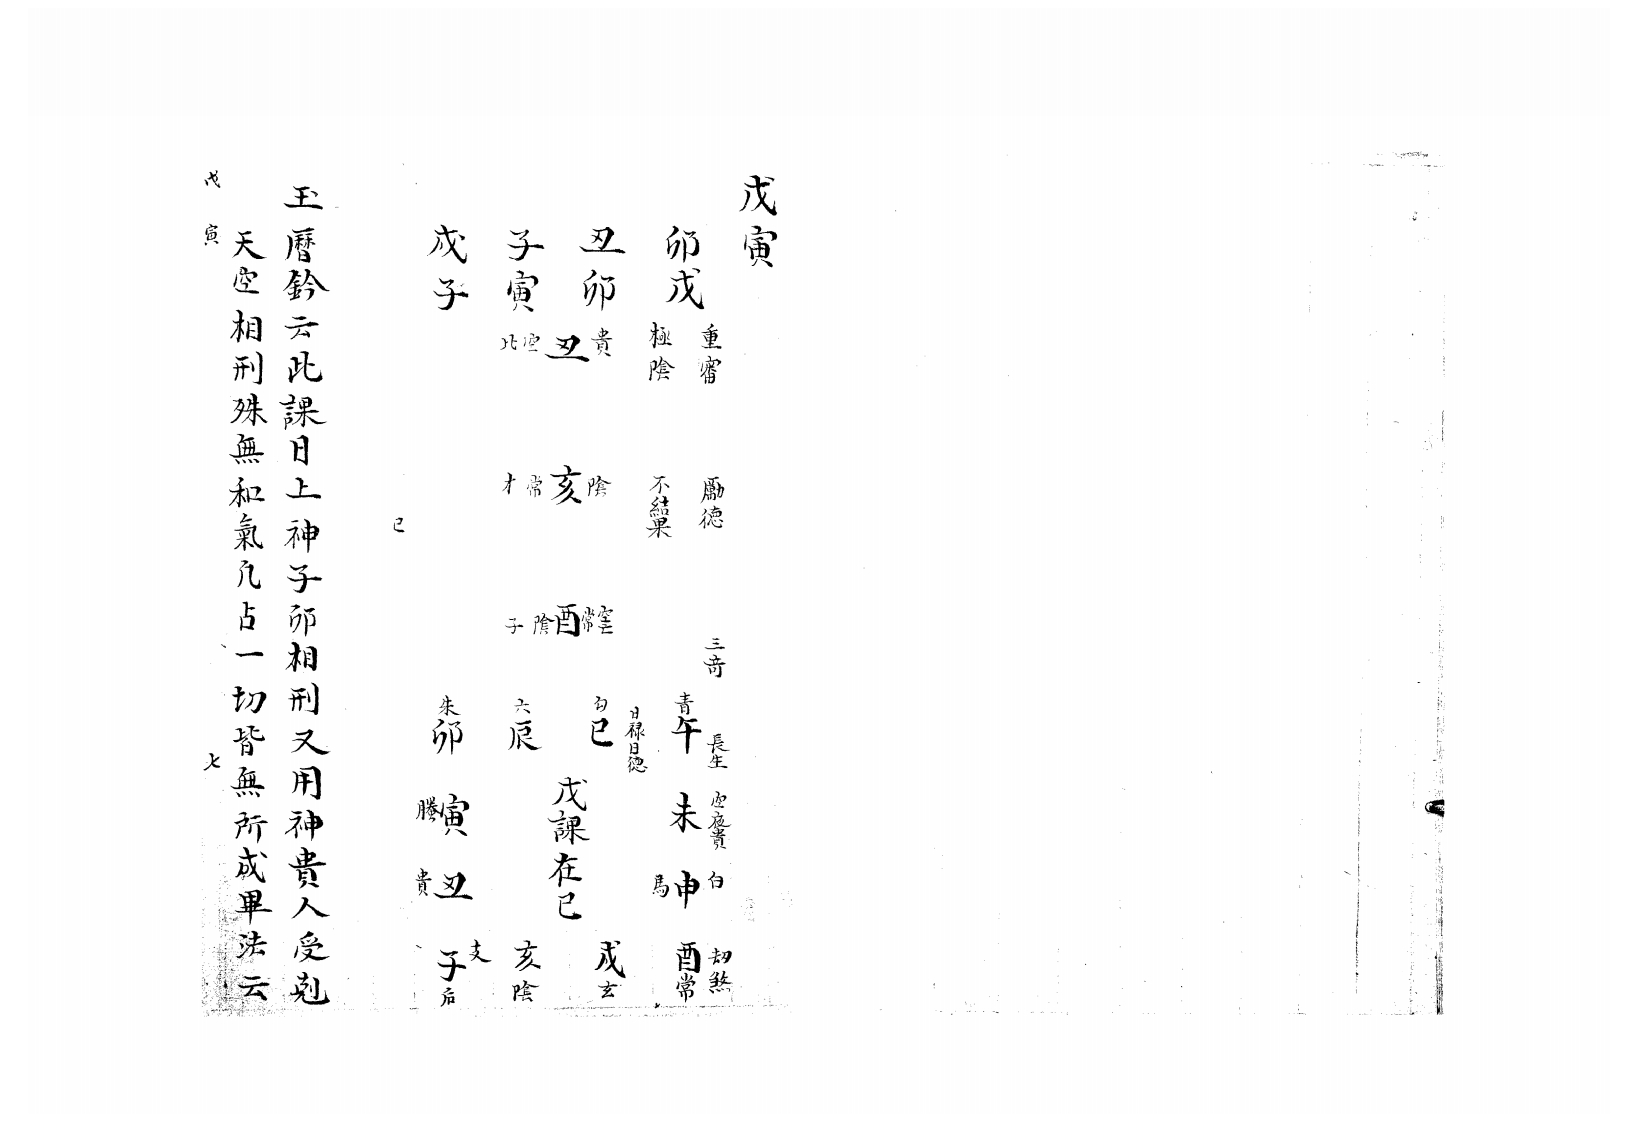 戊寅
卯戊
丑卯
子寅
戌子
重審
極陰
貴丑空比
勵德
不結果
陰亥常才
空常酉陰子
三奇
長生
青午
日祿日德
勾巳
六辰
朱卯
空夜貴
未
戊課在巳
寅螣
白
申馬
丑貴
劫煞
酉常
戌玄
亥陰
支
子后
巳
玉曆鈐云此課日上神子卯相刑又用神貴人受剋
天空相刑殊無和氣凡占一切皆無所成畢法云
戊寅
七